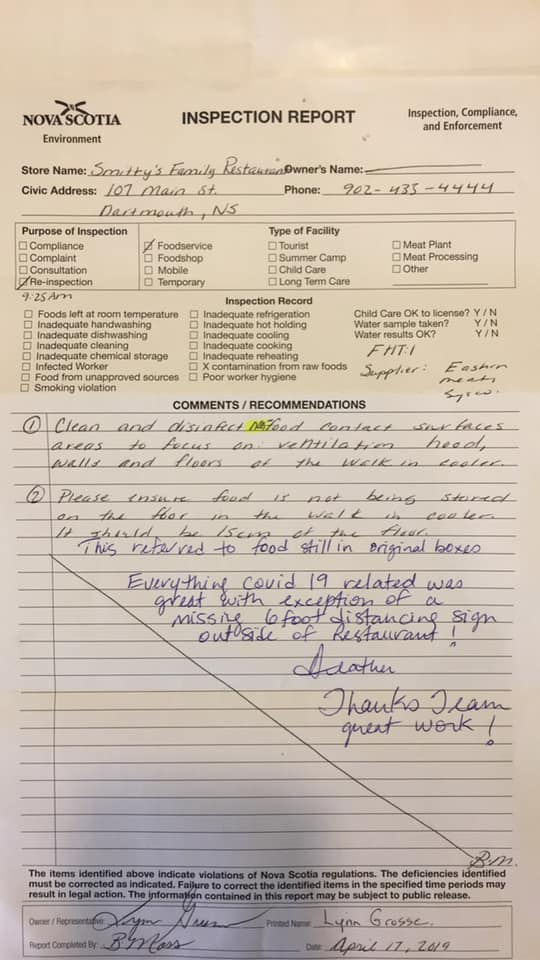 NOVA SCOTIA
Environment
INSPECTION REPORT
Inspection, Compliance,
and Enforcement
Store Name: Smitty's Family Restaurant Owner's Name:
Civic Address: 107 Main St. Phone: 902-435-4444
Dartmouth, NS
Purpose of Inspection
☐ Compliance
☐ Complaint
☐ Consultation
☑ Re-inspection
Type of Facility
☑ Foodservice
☐ Foodshop
☐ Mobile
☐ Temporary
☐ Tourist
☐ Summer Camp
☐ Child Care
☐ Long Term Care
☐ Meat Plant
☐ Meat Processing
☐ Other
9:25 Am
Inspection Record
☐ Foods left at room temperature
☐ Inadequate handwashing
☐ Inadequate dishwashing
☐ Inadequate cleaning
☐ Inadequate chemical storage
☐ Infected Worker
☐ Food from unapproved sources
☐ Smoking violation
☐ Inadequate refrigeration
☐ Inadequate hot holding
☐ Inadequate cooling
☐ Inadequate cooking
☐ Inadequate reheating
☐ X contamination from raw foods
☐ Poor worker hygiene
Child Care OK to license? Y / N
Water sample taken? Y / N
Water results OK? Y / N
FHT:1
Supplier: Eastern
meats
Sysco.
COMMENTS / RECOMMENDATIONS
① Clean and disinfect food contact surfaces
areas to focus on: ventilation hood,
walls and floors of the walk in cooler.
② Please ensure food is not being stored
on the floor in the walk in cooler.
It should be 15cm of the floor.
This referred to food still in original boxes
Everything Covid 19 related was
great with exception of a
missing 6 foot distancing sign
outside of Restaurant!
Thanks Team
great work!
B.M.
The items identified above indicate violations of Nova Scotia regulations. The deficiencies identified
must be corrected as indicated. Failure to correct the identified items in the specified time periods may
result in legal action. The information contained in this report may be subject to public release.
Owner / Representative: Printed Name: Lynn Grosse.
Report Completed By: B Moss Date: April 17, 2019